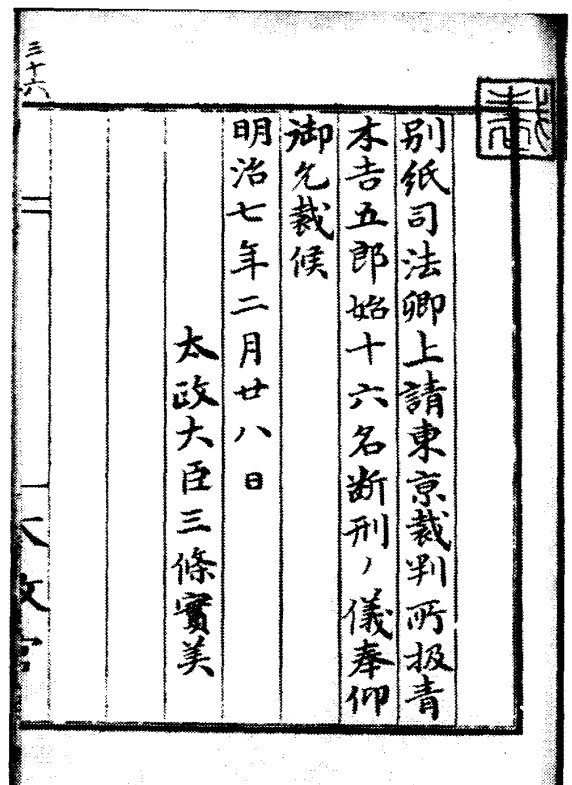 裁
別紙司法卿上請東京裁判所扱青
木吉五郎始十六名断刑ノ儀奉仰
御允裁候
明治七年二月廿八日
太政大臣三條實美
三十六
太政官